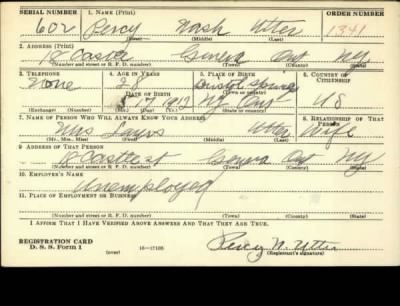 SERIAL NUMBER 1. NAME (Print) ORDER NUMBER
602 Percy Nash Utter 1341
(First) (Middle) (Last)
2. ADDRESS (Print)
18 Castle Geneva Ont NY
(Number and street or R. F. D. number) (Town) (County) (State)
3. TELEPHONE 4. AGE IN YEARS 5. PLACE OF BIRTH 6. COUNTRY OF CITIZENSHIP
None 28
DATE OF BIRTH (Town or county)
5 17 1912 NY Ont US
(Exchange) (Number) (Mo.) (Day) (Yr.) (State or country)
7. NAME OF PERSON WHO WILL ALWAYS KNOW YOUR ADDRESS 8. RELATIONSHIP OF THAT PERSON
Mrs Utter Wife
(Mr., Mrs., Miss) (First) (Middle) (Last)
9. ADDRESS OF THAT PERSON
18 Castle st Geneva Ont NY
(Number and street or R. F. D. number) (Town) (County) (State)
10. EMPLOYER'S NAME
Unemployed
11. PLACE OF EMPLOYMENT OR BUSINESS
(Number and street or R. F. D. number) (Town) (County) (State)
I AFFIRM THAT I HAVE VERIFIED ABOVE ANSWERS AND THAT THEY ARE TRUE.
REGISTRATION CARD
D. S. S. Form 1 (over) 16—17105 Percy N. Utter
(Registrant's signature)